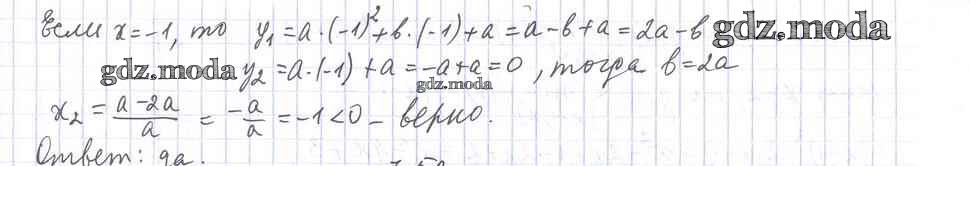 Если x=-1, то y₁ = a·(-1)² + b·(-1) + a = a - b + a = 2a - b gdz.moda
gdz.moda y₂ = a·(-1) + a = -a + a = 0, тогда b = 2a
gdz.moda
x₂ = (a - 2a)/a = -a/a = -1 < 0 - верно.
Ответ: да.